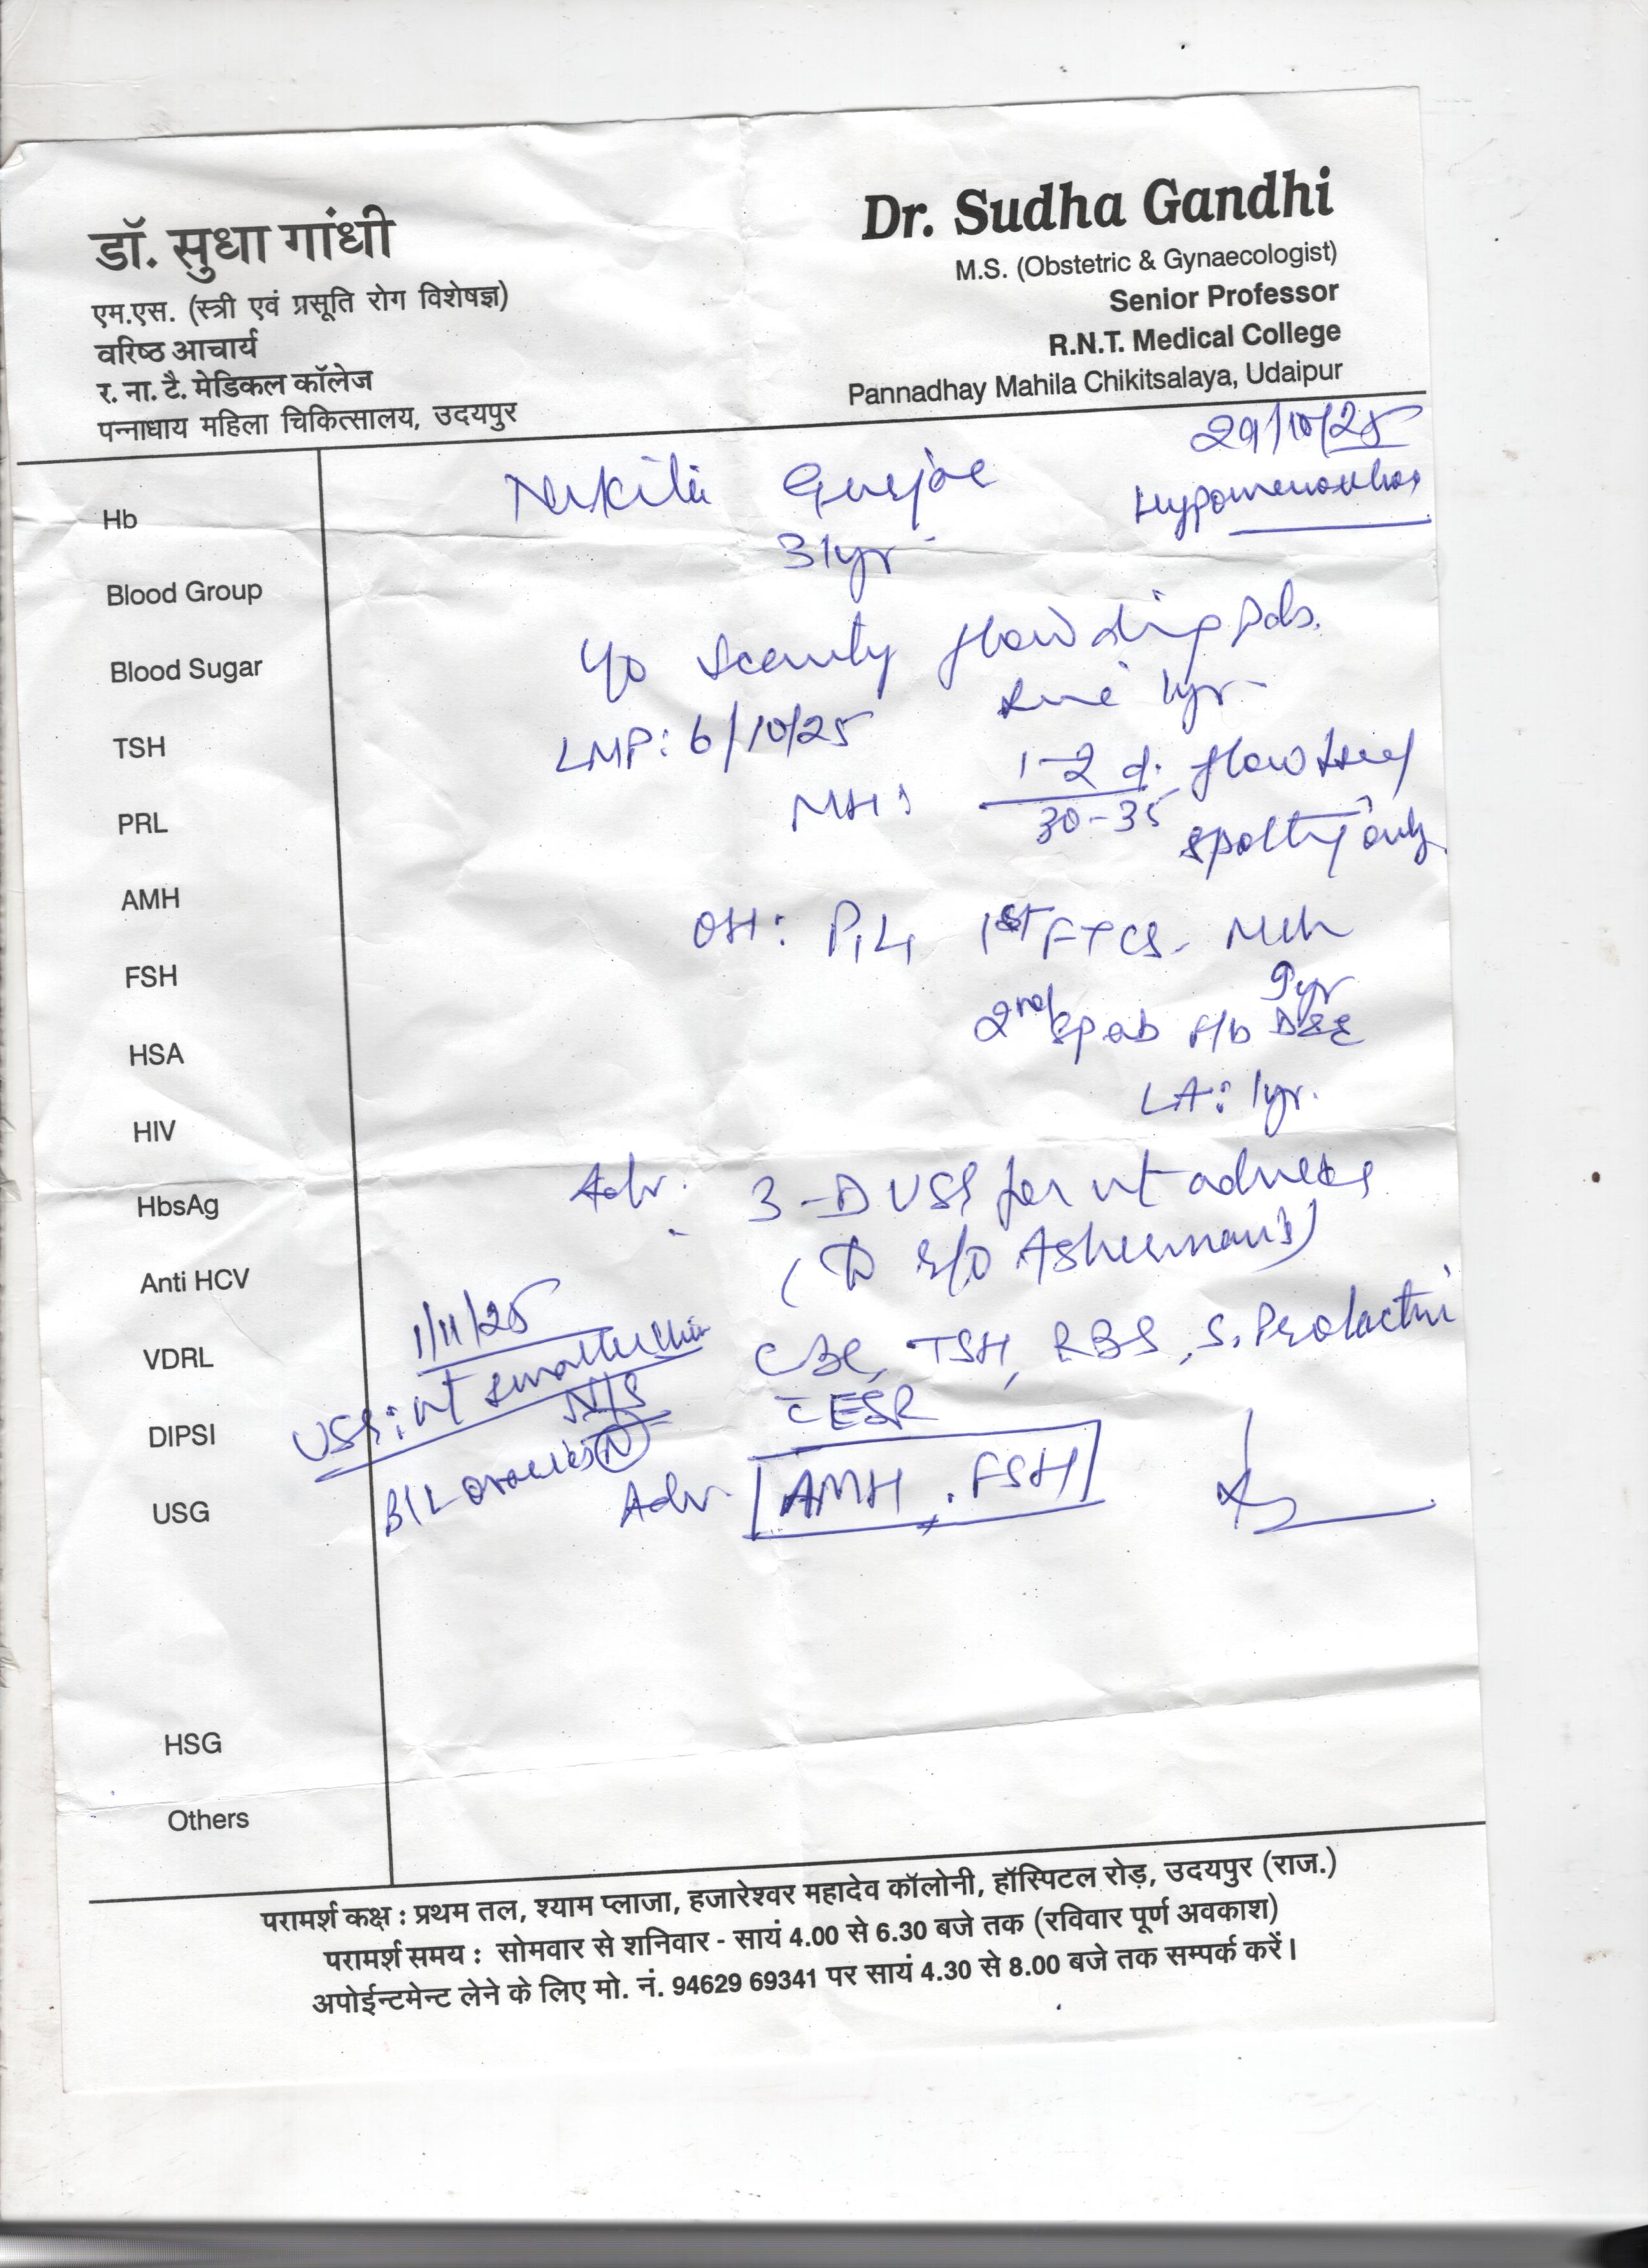 डॉ. सुधा गांधी
एम.एस. (स्त्री एवं प्रसूति रोग विशेषज्ञ)
वरिष्ठ आचार्य
र. ना. टै. मेडिकल कॉलेज
पन्नाधाय महिला चिकित्सालय, उदयपुर
Dr. Sudha Gandhi
M.S. (Obstetric & Gynaecologist)
Senior Professor
R.N.T. Medical College
Pannadhay Mahila Chikitsalaya, Udaipur
29/10/25
Hypomenorrhoea
31yr.
scanty flow
1yr.
LMP: 6/10/25
MH: 1-2 d. flow
30-35
only
OH: P1L1 1st FTCS.
9yr
2nd sp ab D&E
LA: 1yr.
Adv. 3-D USG for ut
(r/o Asherman's)
CBC, TSH, RBS, S. Prolactin
ESR
1/11/25
USG: ut
B/L ovaries N
Adv. AMH, FSH
Hb
Blood Group
Blood Sugar
TSH
PRL
AMH
FSH
HSA
HIV
HbsAg
Anti HCV
VDRL
DIPSI
USG
HSG
Others
परामर्श कक्ष : प्रथम तल, श्याम प्लाजा, हजारेश्वर महादेव कॉलोनी, हॉस्पिटल रोड़, उदयपुर (राज.)
परामर्श समय : सोमवार से शनिवार - सायं 4.00 से 6.30 बजे तक (रविवार पूर्ण अवकाश)
अपोईन्टमेन्ट लेने के लिए मो. नं. 94629 69341 पर सायं 4.30 से 8.00 बजे तक सम्पर्क करें।